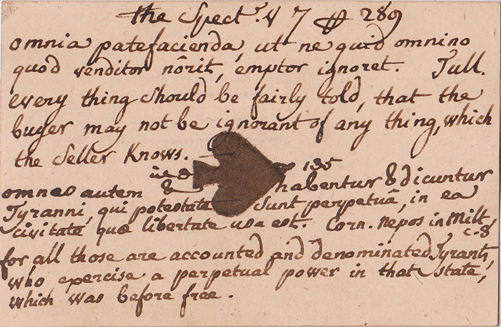 the Spect.r v 7 p 289
omnia patefacienda, ut ne quid omnino
quod venditor nôrit, emptor ignoret. Tull.
every thing should be fairly told, that the
buyer may not be ignorant of any thing, which
the Seller Knows.
135
omnes autem & habentur & dicuntur
Tyranni, qui potestate sunt perpetua, in ea
civitate, quæ libertate usa est. Corn. Nepos in Milt.
c. 8
for all those are accounted and denominated Tyrants,
who exercise a perpetual power in that state,
which was before free.